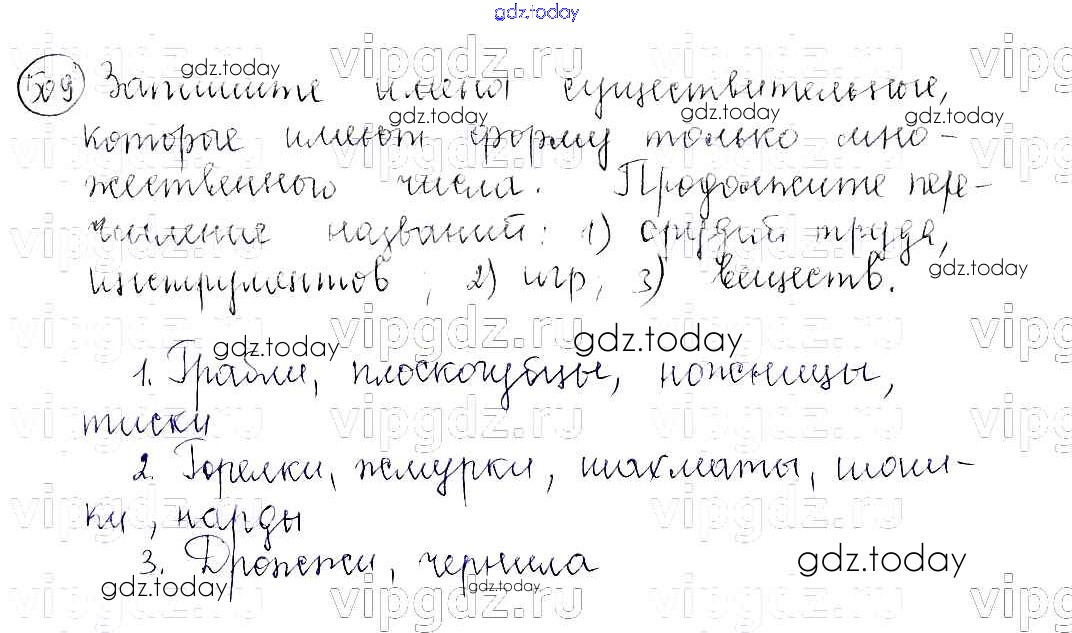 gdz.today
509 Запишите имена существительные,
которые имеют форму только мно-
жественного числа. Продолжите пере-
числение названий: 1) орудий труда,
инструментов; 2) игр; 3) веществ.
1. Грабли, плоскогубцы, ножницы,
тиски
2. Горелки, жмурки, шахматы, шаш-
ки, нарды
3. Дрожжи, чернила
gdz.today
vipgdz.ru